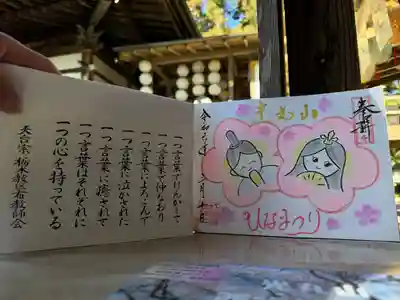 一つ言葉でけんかして
一つ言葉で仲なおり
一つ言葉によろこんで
一つ言葉に泣かされた
一つ言葉に癒されて
一つ言葉はそれぞれに
一つの心を持っている
天台宗 栃木教区布教師会
奉拝
ひなまつり
令和